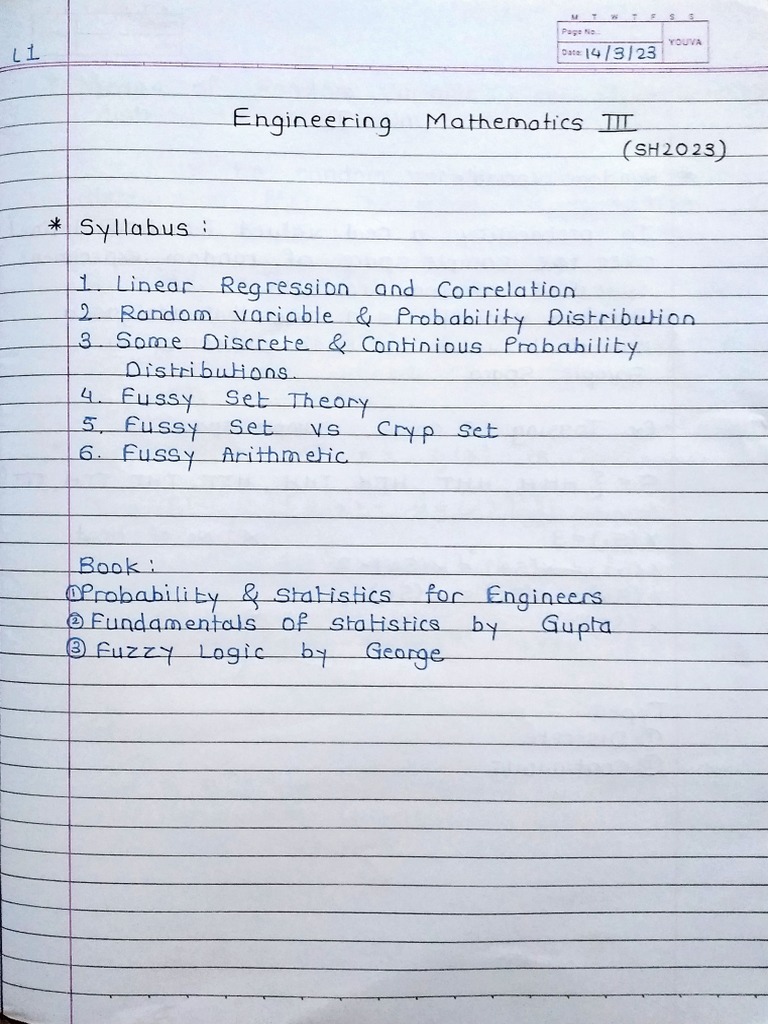 M T W T F S S
Page No.:
YOUVA
Date: 14/3/23
L1
Engineering Mathematics III
(SH2023)
* Syllabus :
1. Linear Regression and Correlation
2. Random variable & Probability Distribution
3. Some Discrete & Continious Probability
Distributions.
4. Fussy Set Theory
5. Fussy Set vs Cryp set
6. Fussy Arithmetic
Book :
① Probability & Statistics for Engineers
② Fundamentals of statistics by Gupta
③ Fuzzy Logic by George